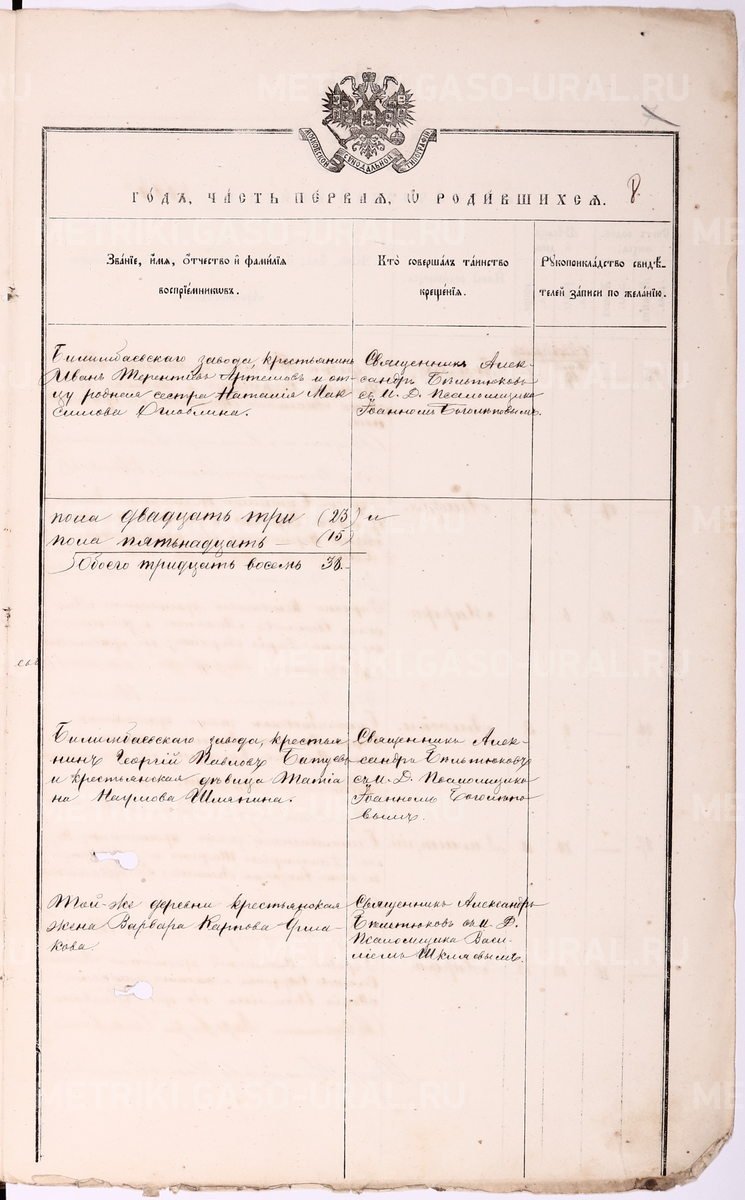 METRIKI.GASO-URAL.RU
МОСКОВСКОЙ СѴНОДАЛЬНОЙ ТИПОГРАФІИ
ГО́ДЪ, ЧА́СТЬ ПЕ́РВАЯ, Ѡ РОДИ́ВШИХСЯ. 8.
Зва́нїе, и҆́мя, ѻ҆́тчество и҆ фами́лїя
воспрїе́мникѡвъ.
Кто̀ соверша́лъ та́инство
креще́нїя.
Рꙋкоприкла́дство свидѣ́-
телей за́писи по жела́нїю.
Билимбаевскаго завода, крестьянинъ
Иванъ Терентьевъ Артемовъ и от-
цу родная сестра Наталія Мак-
симова Оглоблина.
Священникъ Алек-
сандръ Бѣльтюковъ
съ И. Д. Псаломщика
Іоанномъ Боголюповымъ.
пола двадцать три (23) и
пола пятьнадцать — (15)
Обоего тридцать восемь 38.
Билимбаевскаго завода, крестья-
нинъ Георгій Павловъ Батуевъ
и крестьянская дѣвица Татіа-
на Наумова Шляпина.
Священникъ Алек-
сандръ Бѣльтюковъ
съ И. Д. Псаломщика
Іоанномъ Боголюпо-
вымъ.
Той-же деревни крестьянская
жена Варвара Карпова Ерма-
кова.
Священникъ Александръ
Бѣльтюковъ съ И. Д.
Псаломщика Васи-
ліемъ Шкляевымъ.